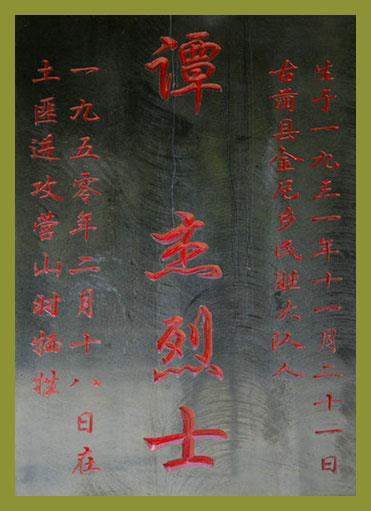 生于一九三一年十一月二十一日
古蔺县金乡民胜大队人
谭杰烈士
一九五零年二月十八日在
土匪进攻营山时牺牲